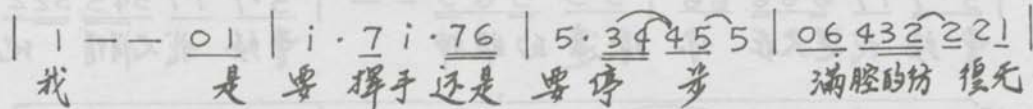 | 1 — — 0 1 | i · 7 i · 7 6 | 5 · 3 4 4 5 5 | 0 6 4 3 2 2 2 1 |
我 是 要 揮手 还是 要 停 步 满腔的彷 徨无